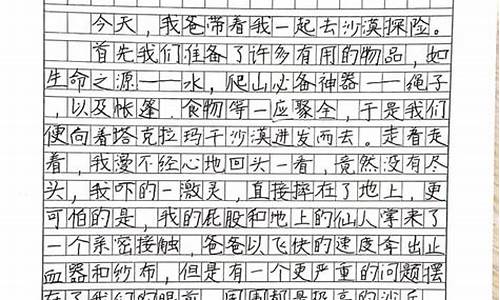 今天，我爸带着我一起去沙漠探险。
首先我们准备了许多有用的物品，如
生命之源——水，爬山必备神器——绳子
，以及帐篷、食物等一应聚全，于是我们
便向着塔克拉玛干沙漠进发而去。走着走
着，我漫不经心地回头一看，竟然没有尽
头，我吓的一激灵，直接摔在了地上，更
可怕的是，我的屁股和地上的仙人掌来了
一个亲密接触，爸爸以飞快的速度拿出止
血器和纱布，但是有一个更严重的问题摆
在了我们的眼前，周围都是极高的沙丘